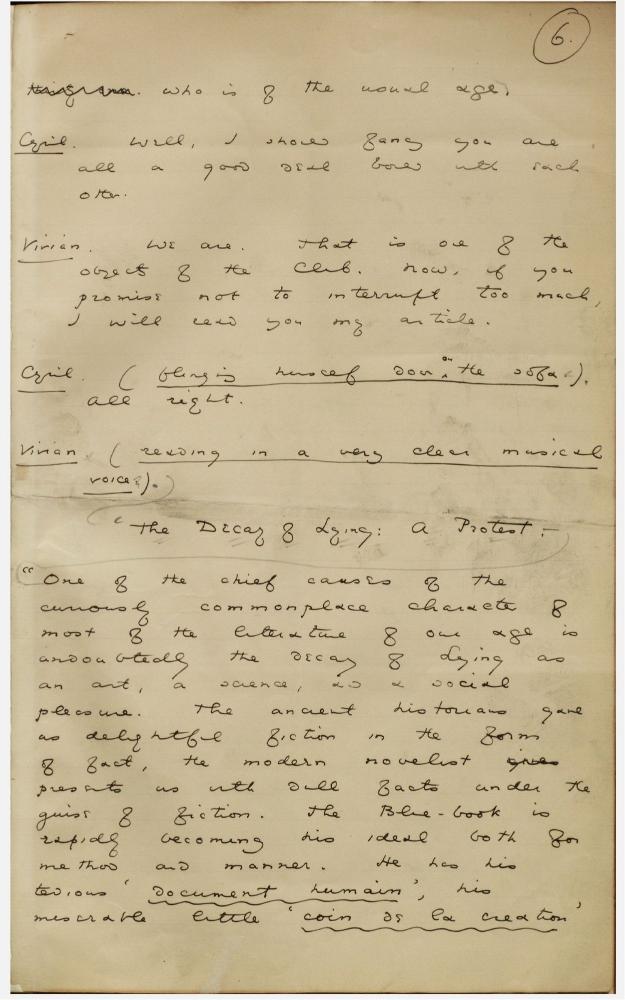 6.
who is of the usual age.
Cyril. Well, I should fancy you are
all a good deal bored with each
other.
Vivian. We are. That is one of the
objects of the Club. Now, if you
promise not to interrupt too much,
I will read you my article.
Cyril. (flinging himself down on the sofa.).
all right.
Vivian (reading in a very clear musical
voice).
"The Decay of Lying: A Protest.—
"One of the chief causes of the
curiously commonplace character of
most of the literature of our age is
undoubtedly the decay of Lying as
an art, a science, and a social
pleasure. The ancient historians gave
us delightful fiction in the form
of fact, the modern novelist gives
presents us with dull facts under the
guise of fiction. The Blue-book is
rapidly becoming his ideal both for
method and manner. He has his
tedious 'document humain', his
miserable little 'coin de la creation'